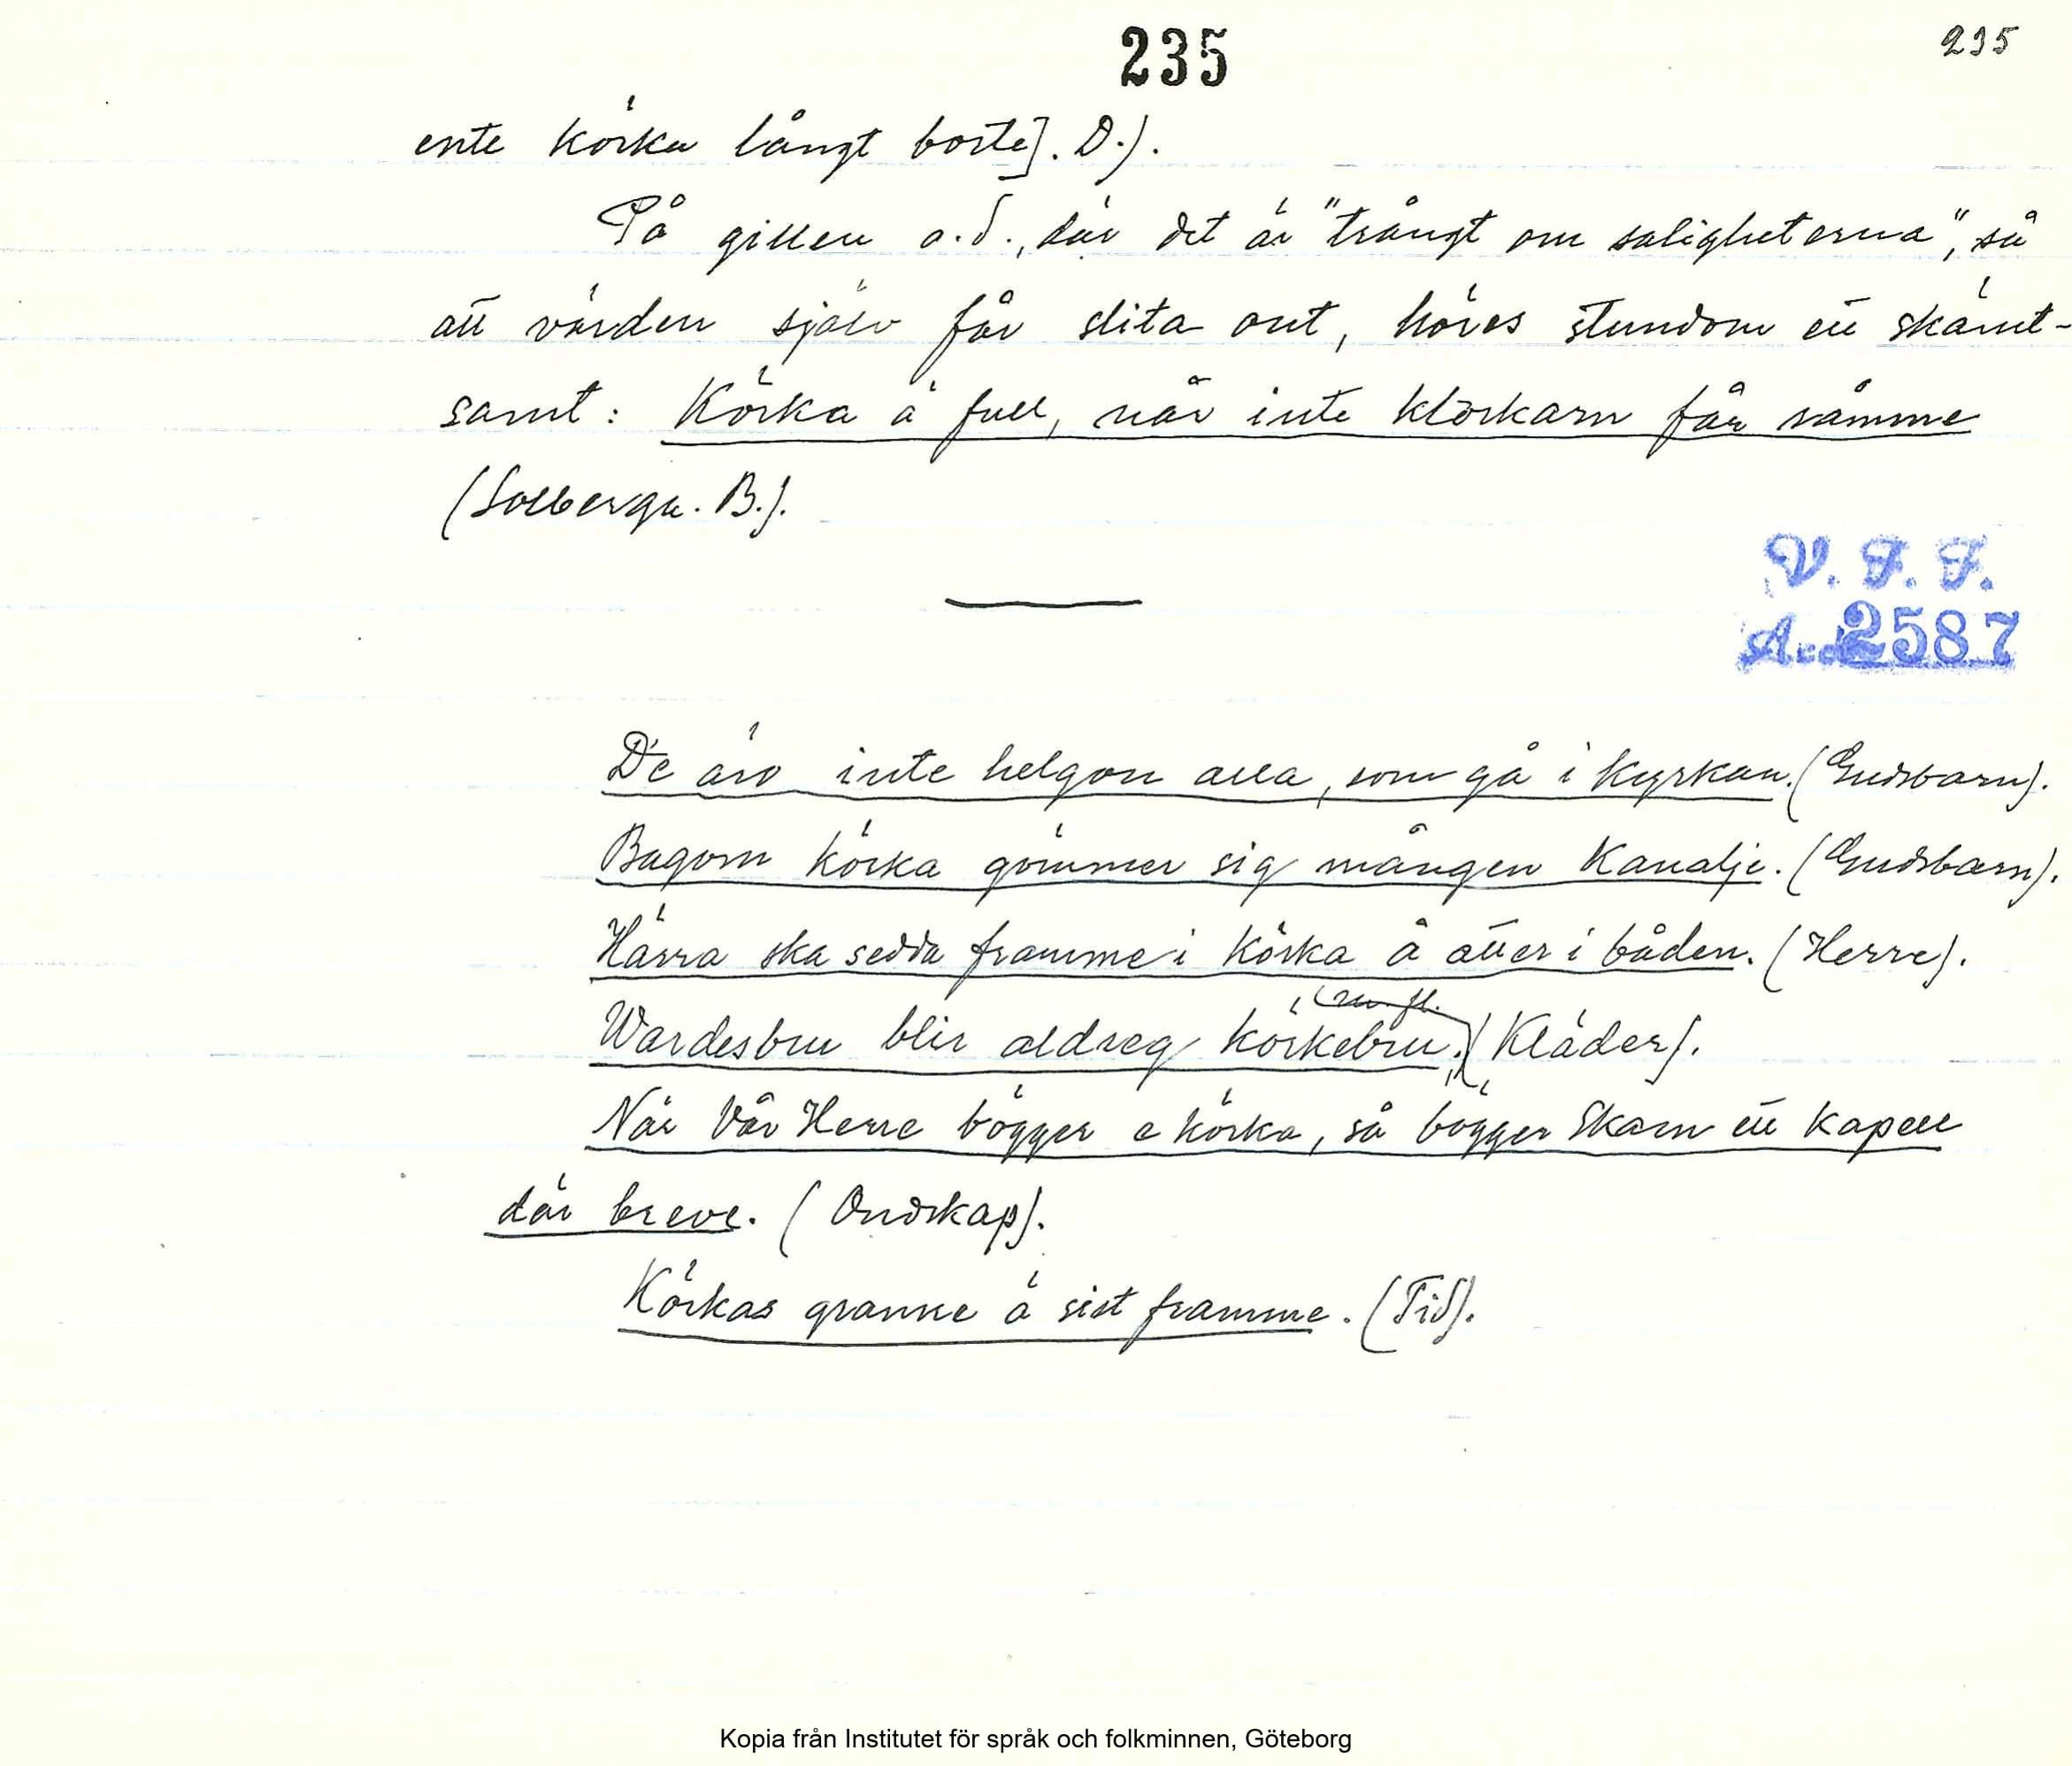 235
235
ente körka långt borte]. D.).
På gillen o.d., där det är "trångt om saligheterna", så
att värden själv får slita ont, höres stundom ett skämt-
samt: Körka ä full, når inte klörkarn får rämme
(Solberga. B.).
V. F. F.
Acc. 2587
De äro inte helgon alla, som gå i kyrkan. (Gudsbarn).
Bagom körka gömmer sig mången kanalje. (Gudsbarn).
Härra ska sedda framme i körka å åtter i båden. (Herre).
m. fl.
Wardesbru blir aldreg körkebru. (Kläder).
När Vår Herre bögger e körka, så bögger Skam ett kapell
där breve. (Ondskap).
Körkas granne ä sist framme. (Tid).
Kopia från Institutet för språk och folkminnen, Göteborg